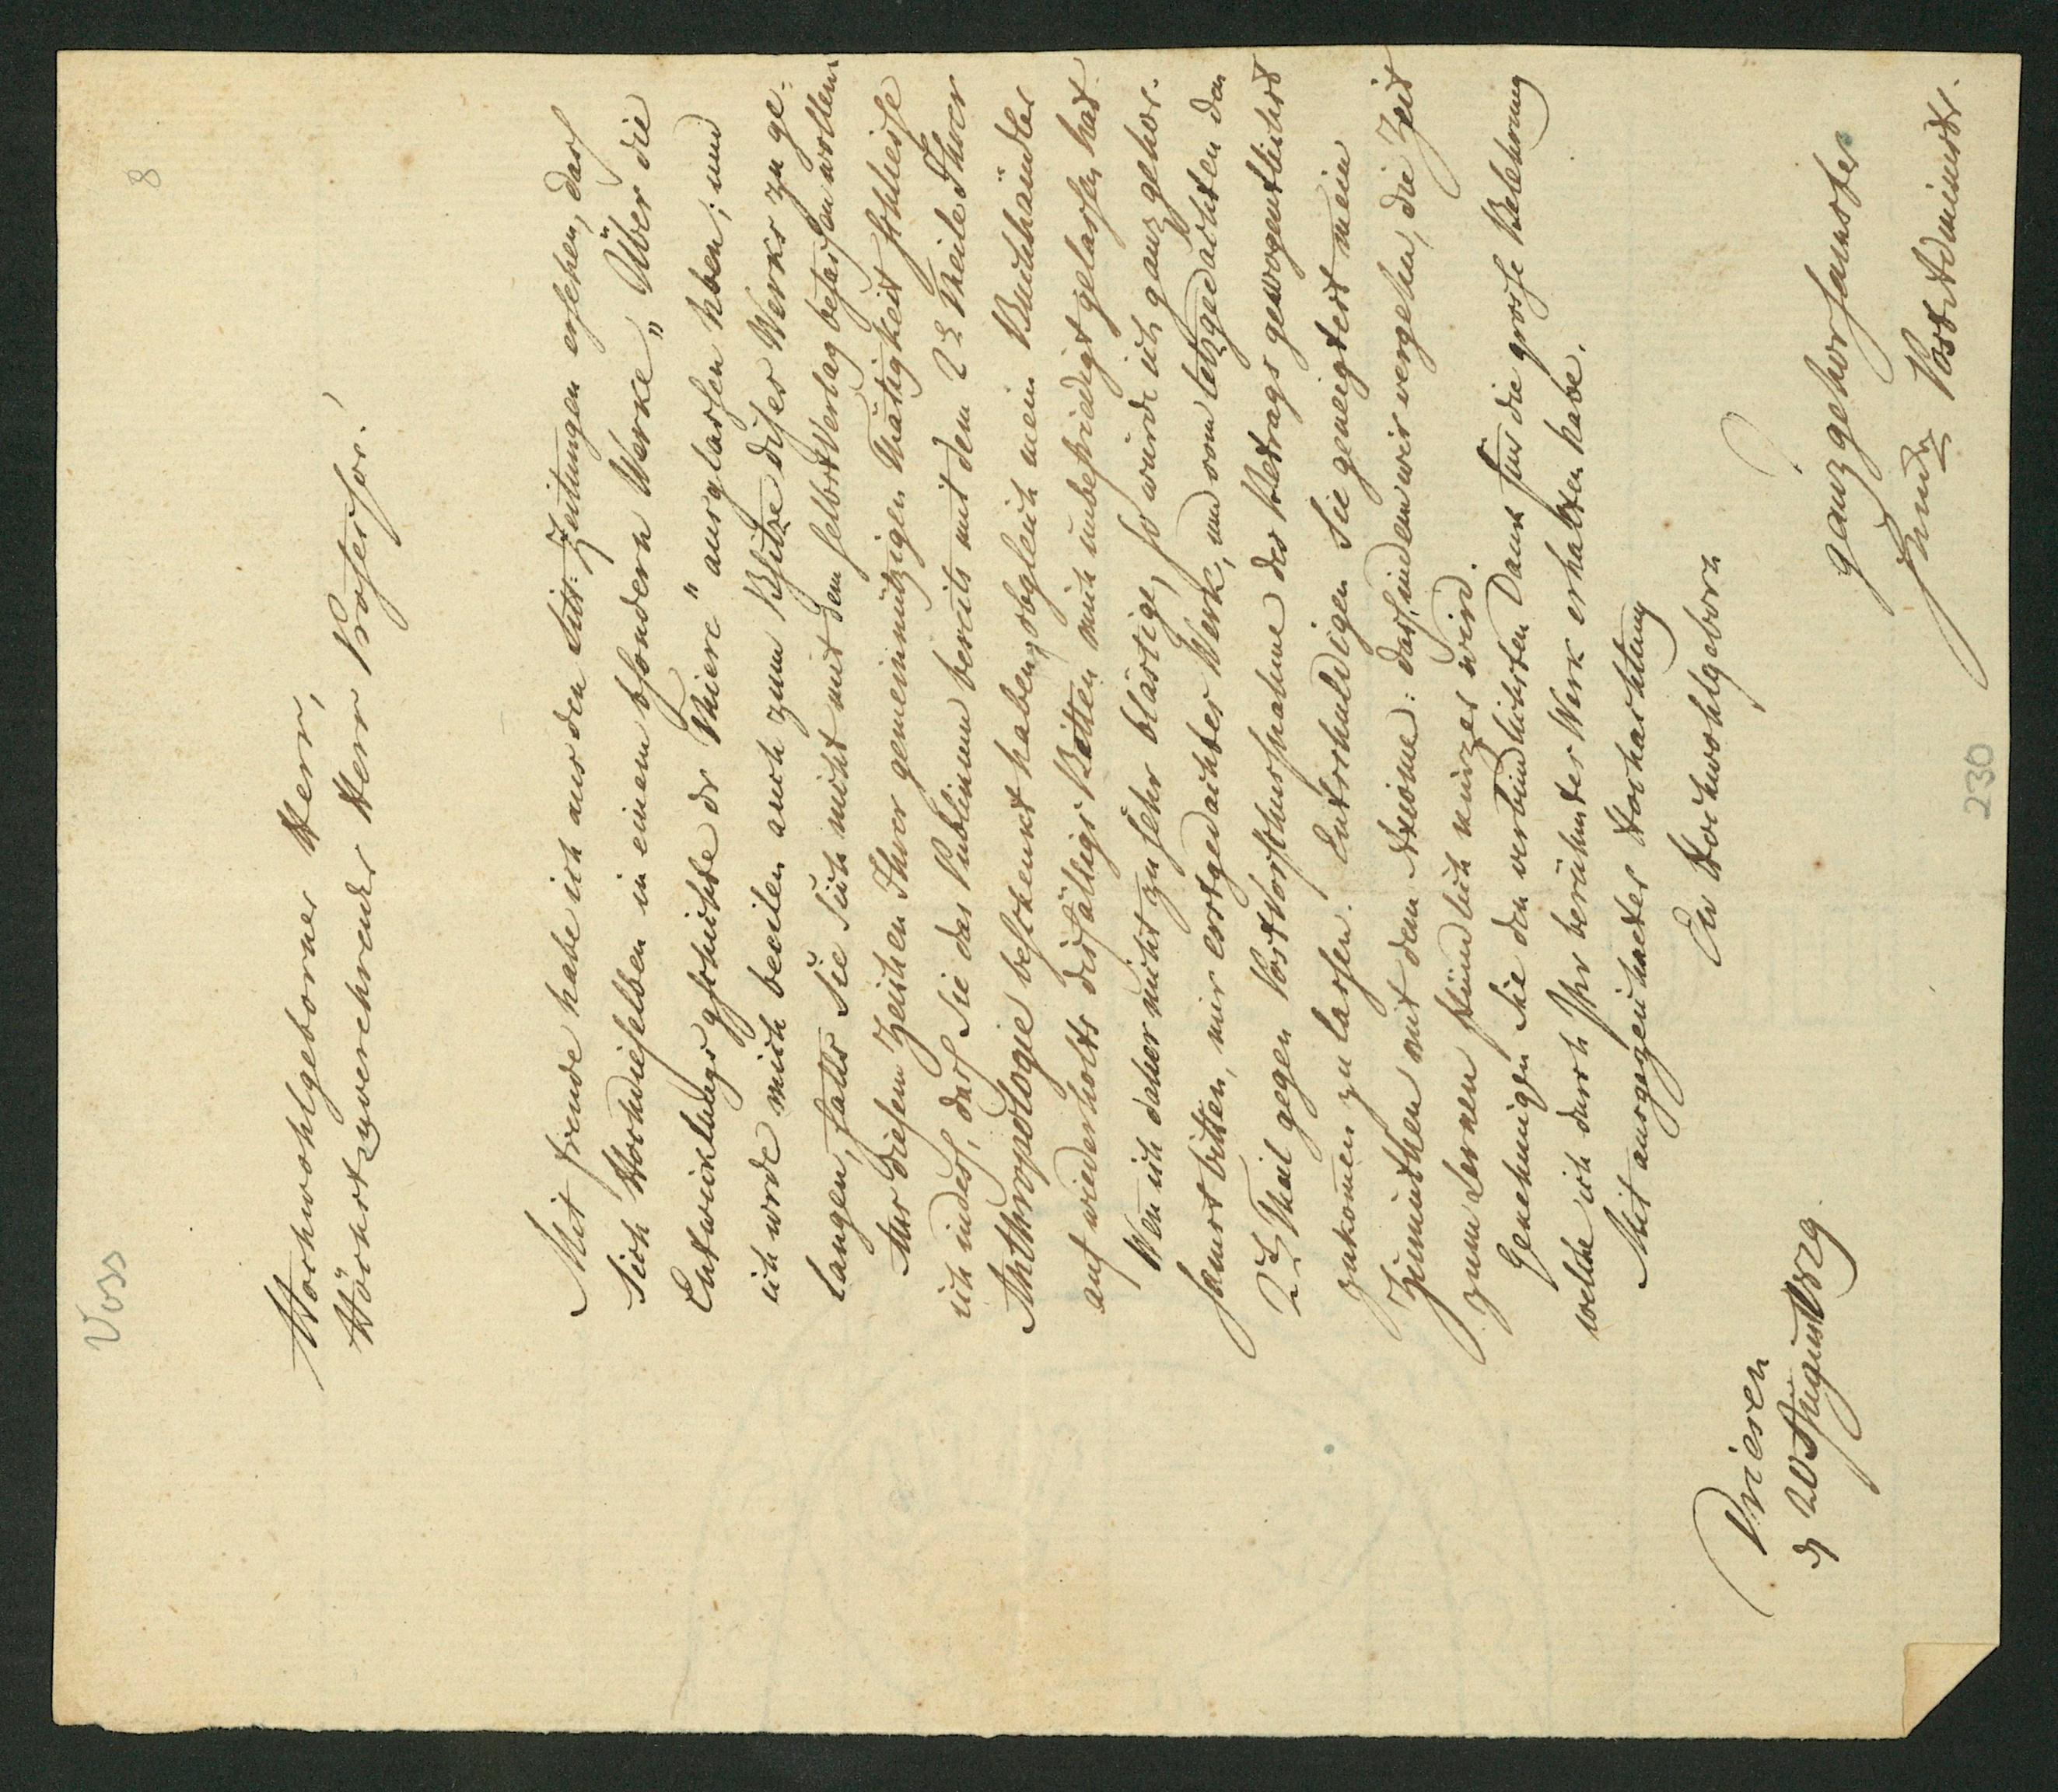 Voss
8
Hochwohlgeborner Herr,
Höchstzuverehrender Herr Professor!
Mit Freude habe ich aus den Litt: Zeitungen ersehen, dass
Sich Hochdieselben in einem bsondern Werke „Über die
Entwiklungsgschichte dr Thiere" auslassen wben; und
ich werde mich beeilen auch zum Bsitze diser Werks zu ge-
langen, falls Sie Sich nicht mit dem selbst Verlag befassen wollen
Aus diesem Zeichen Ihrer gemeinnützigen Thätigkeit schliesse
ich indess, dass Sie das Publicum bereits mit dem 2n Theile Ihrer
Anthropologie beschenkt haben, obgleich mein Buchhändler
auf wiederholts disfälligs Bitten mich unbefriedigt gelassen hat.
Wen ich daher nicht zu sehr blästige, so würde ich ganz gehor-
samst bitten, mir erstgedachtes Werk, und vom letzgedachten den
2tn Theil gegen Post Vorschussnahme des Betrags gewogentlichst
zukomen zu lassen. Entschuldigen Sie geneigtest mein
Zumuthen mit dem Axiome: dass, indem wir vergehen, die Zeit
zum Lernen stündlich kürzer wird.
Genehmigen Sie den verbindlichsten Dank für die grosse Belehrung
welche ich durch Ihr berühmtes Werk erhalten habe.
Mit ausgezeichneter Hochachtung
Ew Hochwohlgeborn
Driesen
d 20 August 1829
ganz gehorsamster
Post Administr.
230